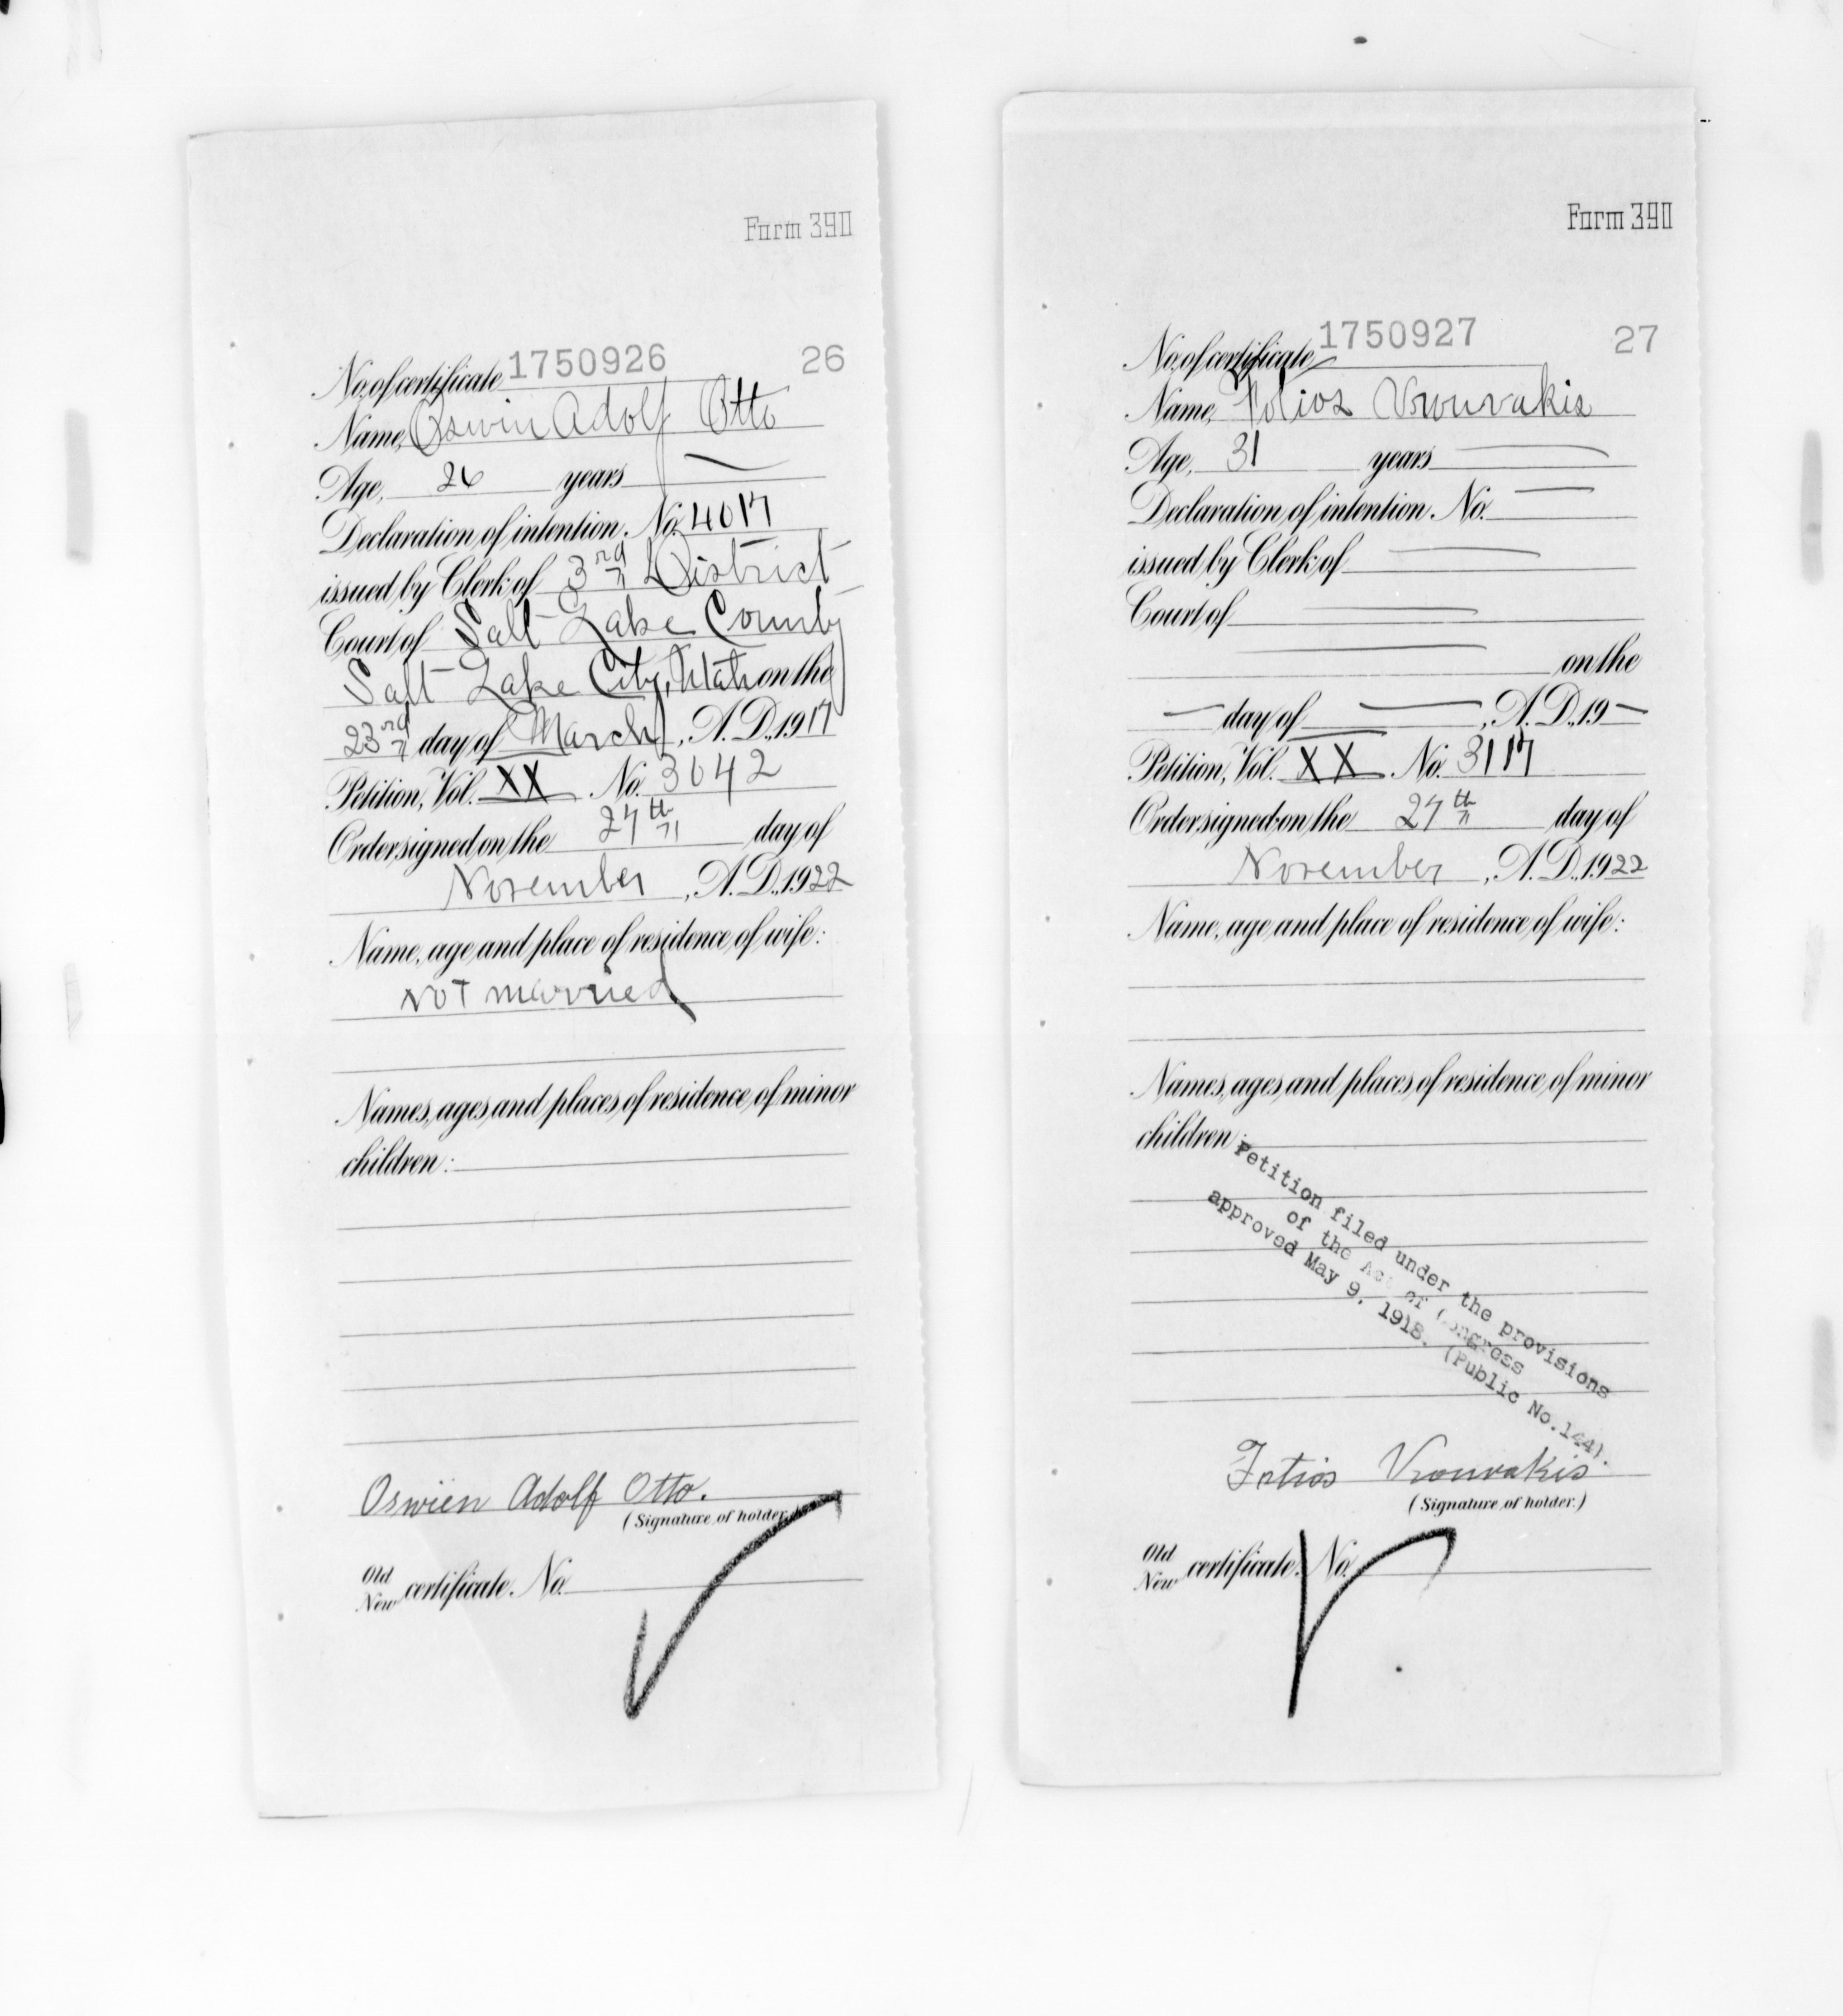 Form 390
No. of certificate 1750926 26
Name, Oswin Adolf Otto
Age, 26 years
Declaration of intention. No. 4017
issued by Clerk of 3rd District
Court of Salt Lake County
Salt Lake City, Utah on the
23rd day of March, A.D. 1917
Petition, Vol. XX No. 3042
Order signed on the 27th day of
November, A.D. 1922
Name, age and place of residence of wife:
Not married
Names, ages and places of residence of minor
children:
Oswien Adolf Otto.
(Signature of holder.)
Old
New certificate. No.
Form 390
No. of certificate 1750927 27
Name, Vrouvakis
Age, 31 years
Declaration of intention. No.
issued by Clerk of
Court of
on the
day of , A.D. 19
Petition, Vol. XX No. 3117
Order signed on the 27th day of
November, A.D. 1922
Name, age and place of residence of wife:
Names, ages and places of residence of minor
children:
Petition filed under the provisions
of the Act of Congress
approved May 9, 1918. (Public No. 144).
Fotios Vrouvakis
(Signature of holder.)
Old
New certificate. No.